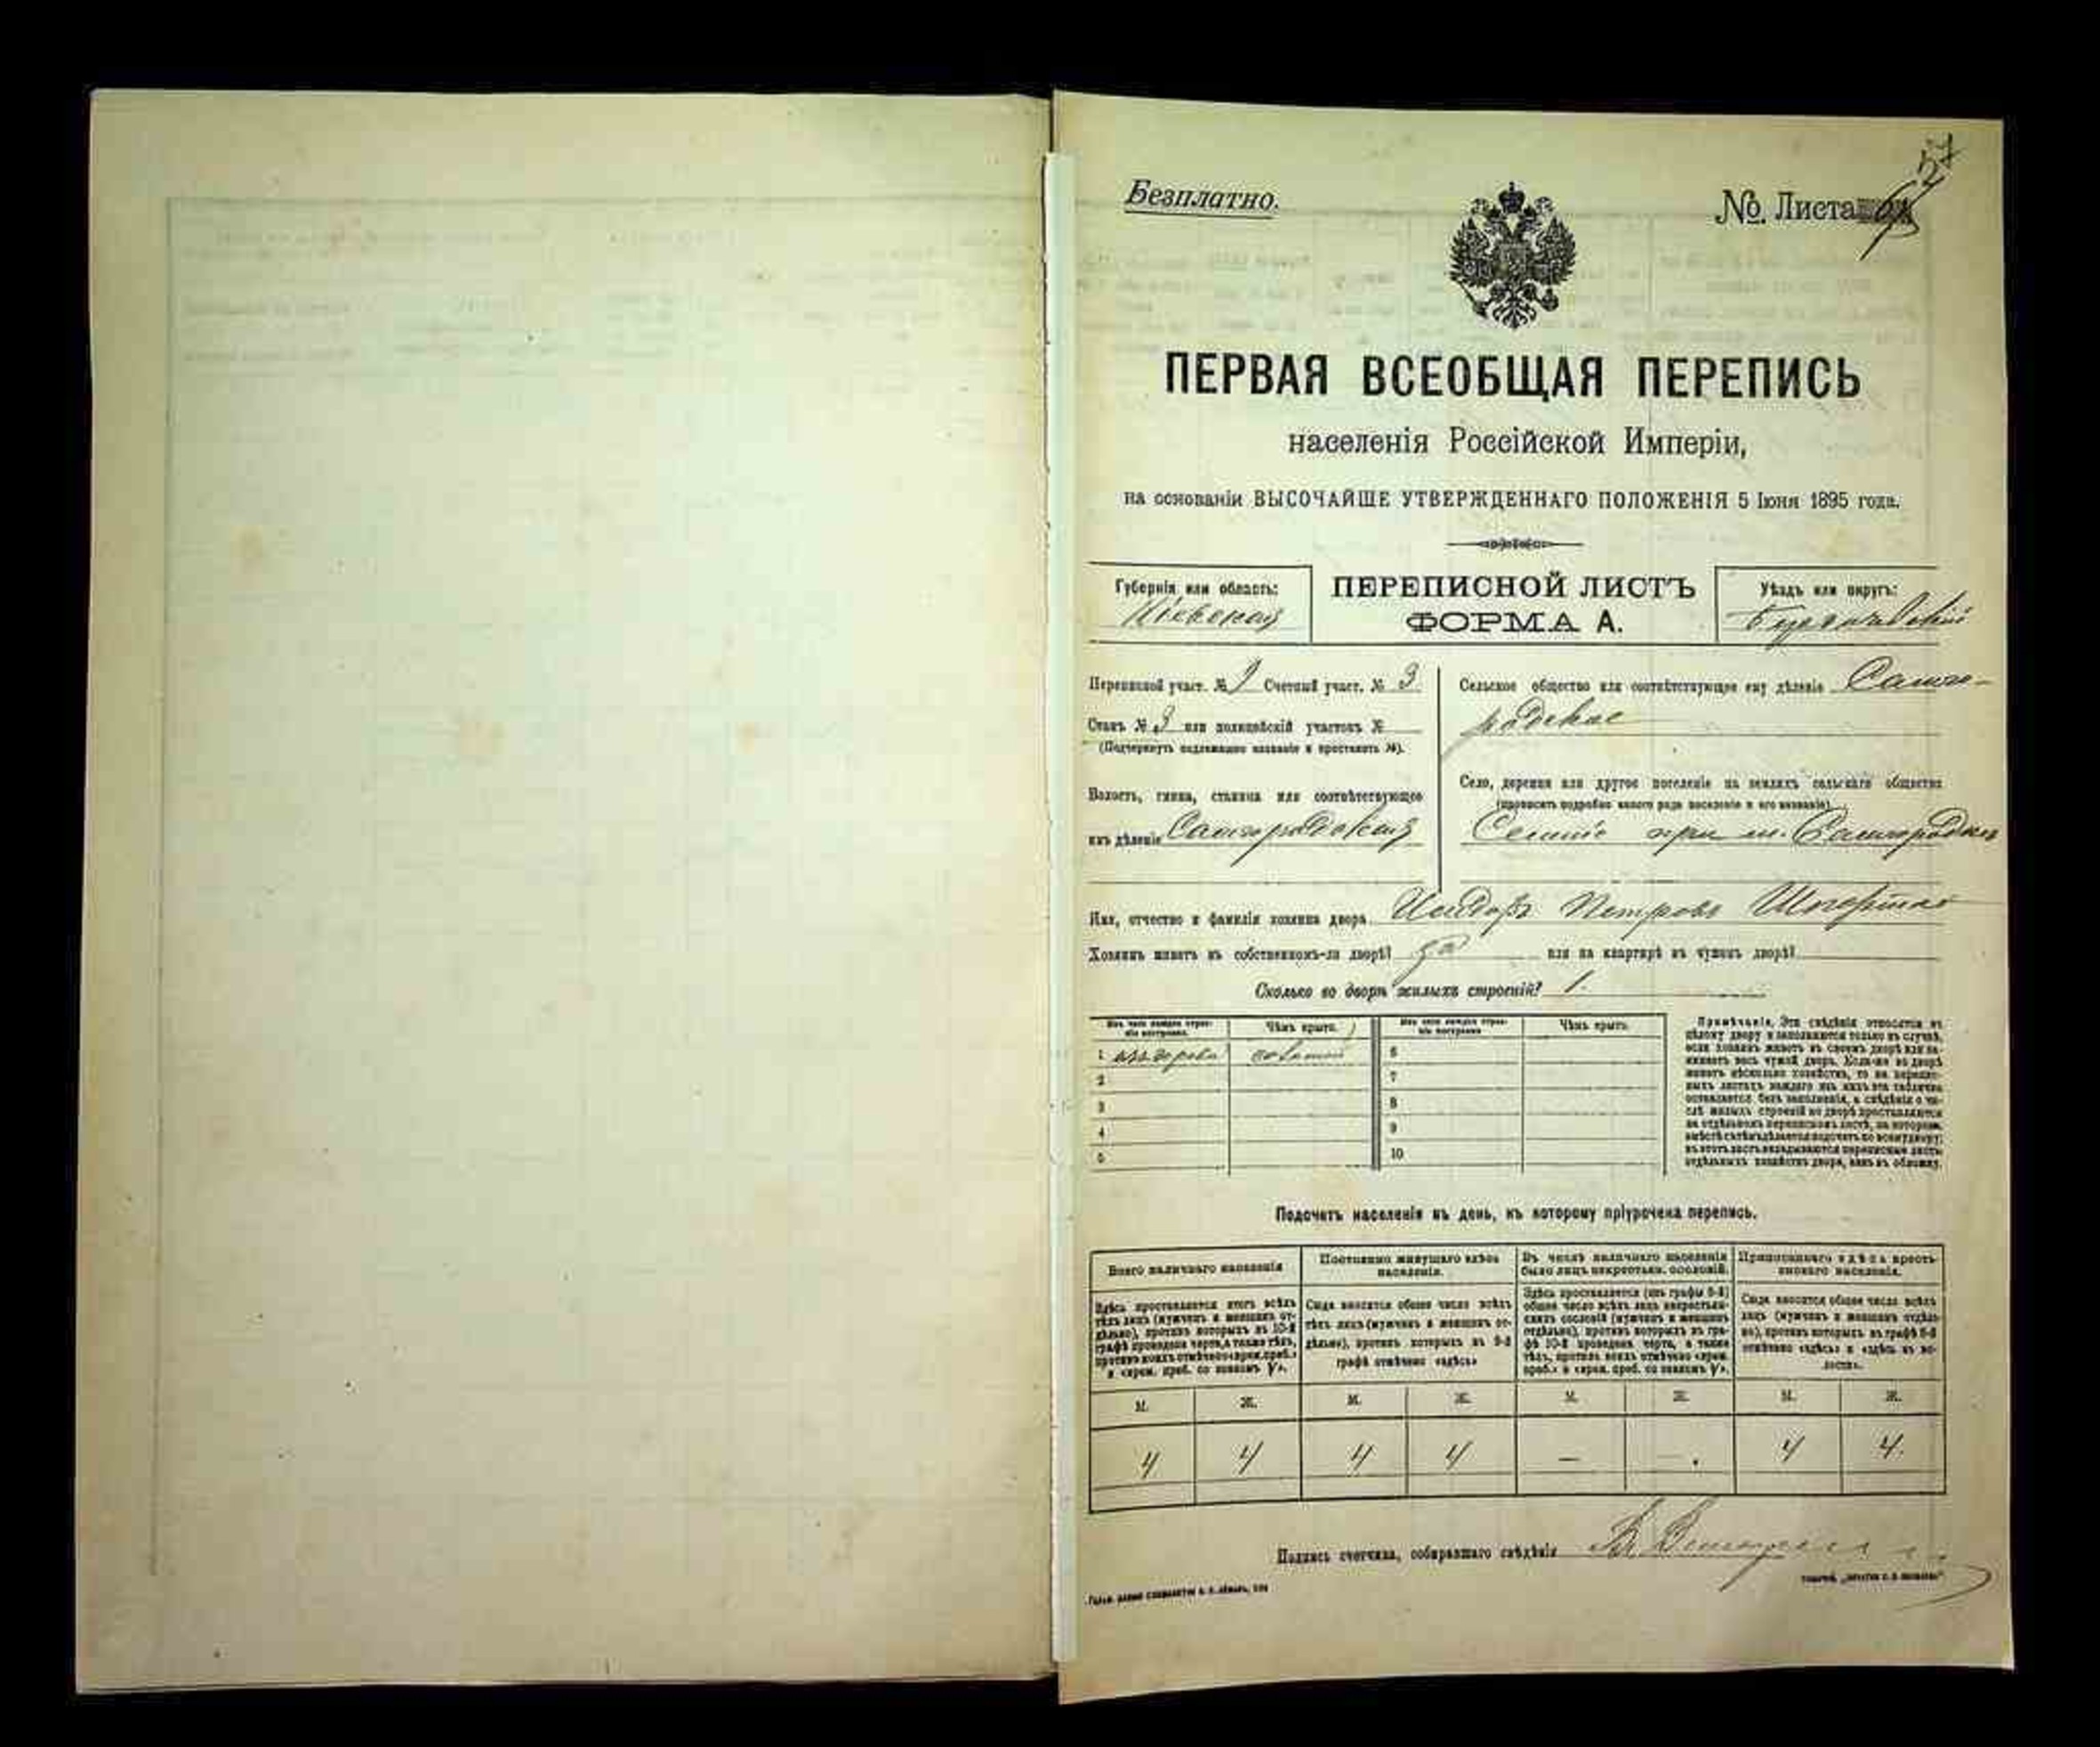 Безплатно.
№ Листа
57
ПЕРВАЯ ВСЕОБЩАЯ ПЕРЕПИСЬ
населенія Россійской Имперіи,
на основаніи ВЫСОЧАЙШЕ УТВЕРЖДЕННАГО ПОЛОЖЕНІЯ 5 Іюня 1895 года.
Губернія или область:
Кіевская
ПЕРЕПИСНОЙ ЛИСТЪ
ФОРМА А.
Уѣздъ или округъ:
Бердичевскій
Переписной участ. № 9 Счетный участ. № 3
Станъ № 3 или полицейскій участокъ №
(Подчеркнуть подлежащее названіе и проставить №).
Волость, гмина, станица или соотвѣтствующее
имъ дѣленіе Самгородская
Сельское общество или соотвѣтствующее ему дѣленіе Самго-
родское
Село, деревня или другое поселеніе на земляхъ сельскаго общества
(прописать подробно какого рода поселеніе и его названіе)
Селеніе при м. Самгородкѣ
Имя, отчество и фамилія хозяина двора Исидоръ Петровъ
Хозяинъ живетъ въ собственномъ-ли дворѣ? да или на квартирѣ въ чужомъ дворѣ?
Сколько во дворѣ жилыхъ строеній? 1.
Изъ чего каждое строеніе построено. Чѣмъ крыто. Изъ чего каждое строеніе построено Чѣмъ крыто.
1 изъ дерева соломой 6
2 7
3 8
4 9
5 10
Примѣчаніе. Эти свѣдѣнія относятся къ
цѣлому двору и заполняются только въ случаѣ,
если хозяинъ живетъ въ своемъ дворѣ или за-
нимаетъ весь чужой дворъ. Если-же во дворѣ
живетъ нѣсколько хозяйствъ, то на перепис-
ныхъ листахъ каждаго изъ нихъ эта табличка
оставляется безъ заполненія, а свѣдѣнія о чи-
слѣ жилыхъ строеній во дворѣ проставляются
на отдѣльномъ переписномъ листѣ, на которомъ
вмѣстѣ съ тѣмъ дѣлается подсчетъ по всему двору;
въ этотъ листъ вкладываются переписные листы
отдѣльныхъ хозяйствъ двора, какъ въ обложку.
Подсчетъ населенія въ день, къ которому пріурочена перепись.
Всего наличнаго населенія
Здѣсь проставляется итогъ всѣхъ
тѣхъ лицъ (мужчинъ и женщинъ от-
дѣльно), противъ которыхъ въ 10-й
графѣ проведена черта, а также тѣхъ,
противъ коихъ отмѣчено «врем. преб.»
и «врем. преб. со знакомъ V».
Постоянно живущаго здѣсь
населенія.
Сюда вносится общее число всѣхъ
тѣхъ лицъ (мужчинъ и женщинъ от-
дѣльно), противъ которыхъ въ 9-й
графѣ отмѣчено «здѣсь»
Въ числѣ наличнаго населенія
было лицъ некрестьян. сословій.
Здѣсь проставляется (изъ графы 6-й)
общее число всѣхъ лицъ некрестьян-
скихъ сословій (мужчинъ и женщинъ
отдѣльно), противъ которыхъ въ гра-
фѣ 10-й проведена черта, а также
тѣхъ, противъ коихъ отмѣчено «врем.
преб.» и «врем. преб. со знакомъ V».
Приписаннаго здѣсь кресть-
янскаго населенія.
Сюда вносится общее число всѣхъ
лицъ (мужчинъ и женщинъ отдѣль-
но), противъ которыхъ въ графѣ 8-й
отмѣчено «здѣсь» и «здѣсь въ во-
лости».
М. Ж. М. Ж. М. Ж. М. Ж.
4 4 4 4 — — 4 4.
Подпись счетчика, собиравшаго свѣдѣнія